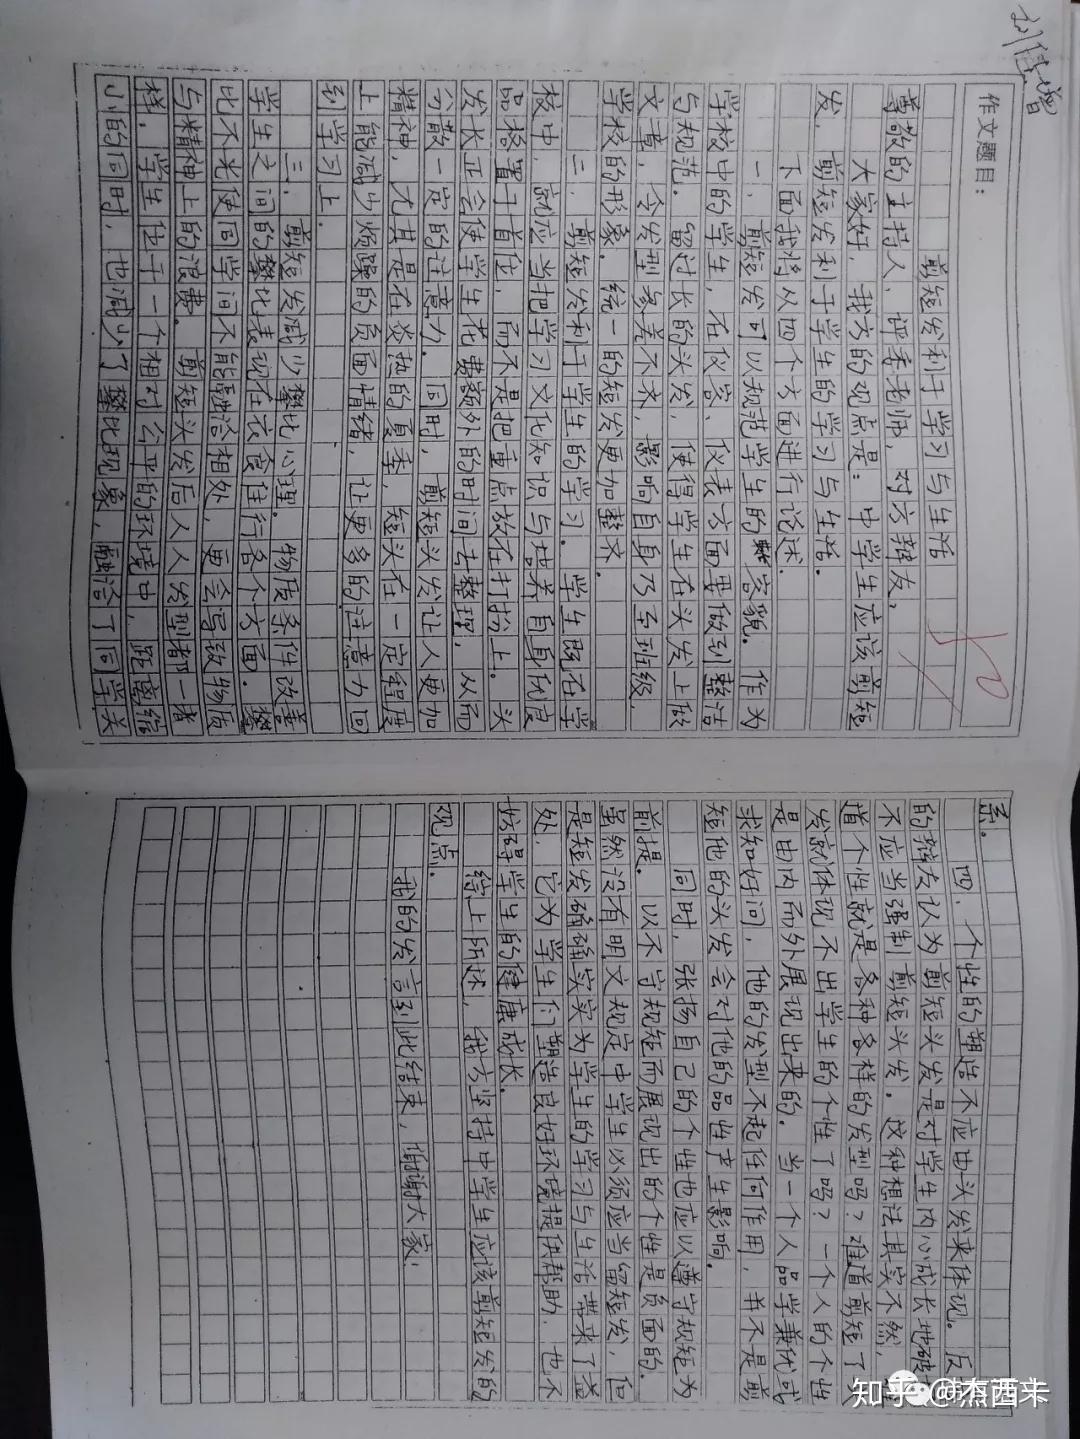 作文题目：
剪短发利于学习与生活
尊敬的主持人、评委老师，对方辩友，
大家好，我方的观点是：中学生应该剪短
发，剪短发利于学生的学习与生活。
下面我将从四个方面进行论述。
一、剪短发可以规范学生的容貌。作为
学校中的学生，在仪容、仪表方面要做到整洁
与规范。留过长的头发，使得学生在头发上做
文章，令发型参差不齐，影响自身乃至班级、
学校的形象。统一的短发更加整齐。
二、剪短发利于学生的学习。学生既在学
校中，就应当把学习文化知识与培养自身优良
品格置于首位，而不是把重点放在打扮上。头
发长正会使学生花费额外的时间去整理，从而
分散一定的注意力。同时，剪短头发让人更加
精神，尤其是在炎热的夏季，短头在一定程度
上能减少烦躁的负面情绪，让更多的注意力回
到学习上。
三、剪短发减少攀比心理。物质条件改善
学生之间的攀比表现在衣食住行各个方面。攀
比不光使同学间不能融洽相处，更会导致物质
与精神上的浪费。剪短头发后人人发型都一者
样，学生位于一个相对公平的环境中，距离缩
小的同时，也减少了攀比现象，融洽了同学关
系。
四、个性的塑造不应由头发来体现。反
的辩友认为剪短头发是对学生内心成长地
不应当强制剪短头发。这种想法其实不然，
指个性就是各种各样的发型吗？难道剪短了
发就体现不出学生的个性了吗？一个人的个性
是由内而外展现出来的。当一个人品学兼优或
求知好问，他的发型不起任何作用，并不是剪
短他的头发会对他的品性产生影响。
同时，张扬自己的个性也应以遵守规矩为
前提。以不守规矩而展现出的个性是负面的。
虽然没有明文规定中学生必须应当留短发，但
是短发确确实实为学生的学习与生活带来了益
处，它为学生们塑造良好环境提供帮助，也不
妨碍学生的健康成长。
综上所述，我方坚持中学生应该剪短发的
观点。
我的发言到此结束，谢谢大家！
知乎 @杰西卡